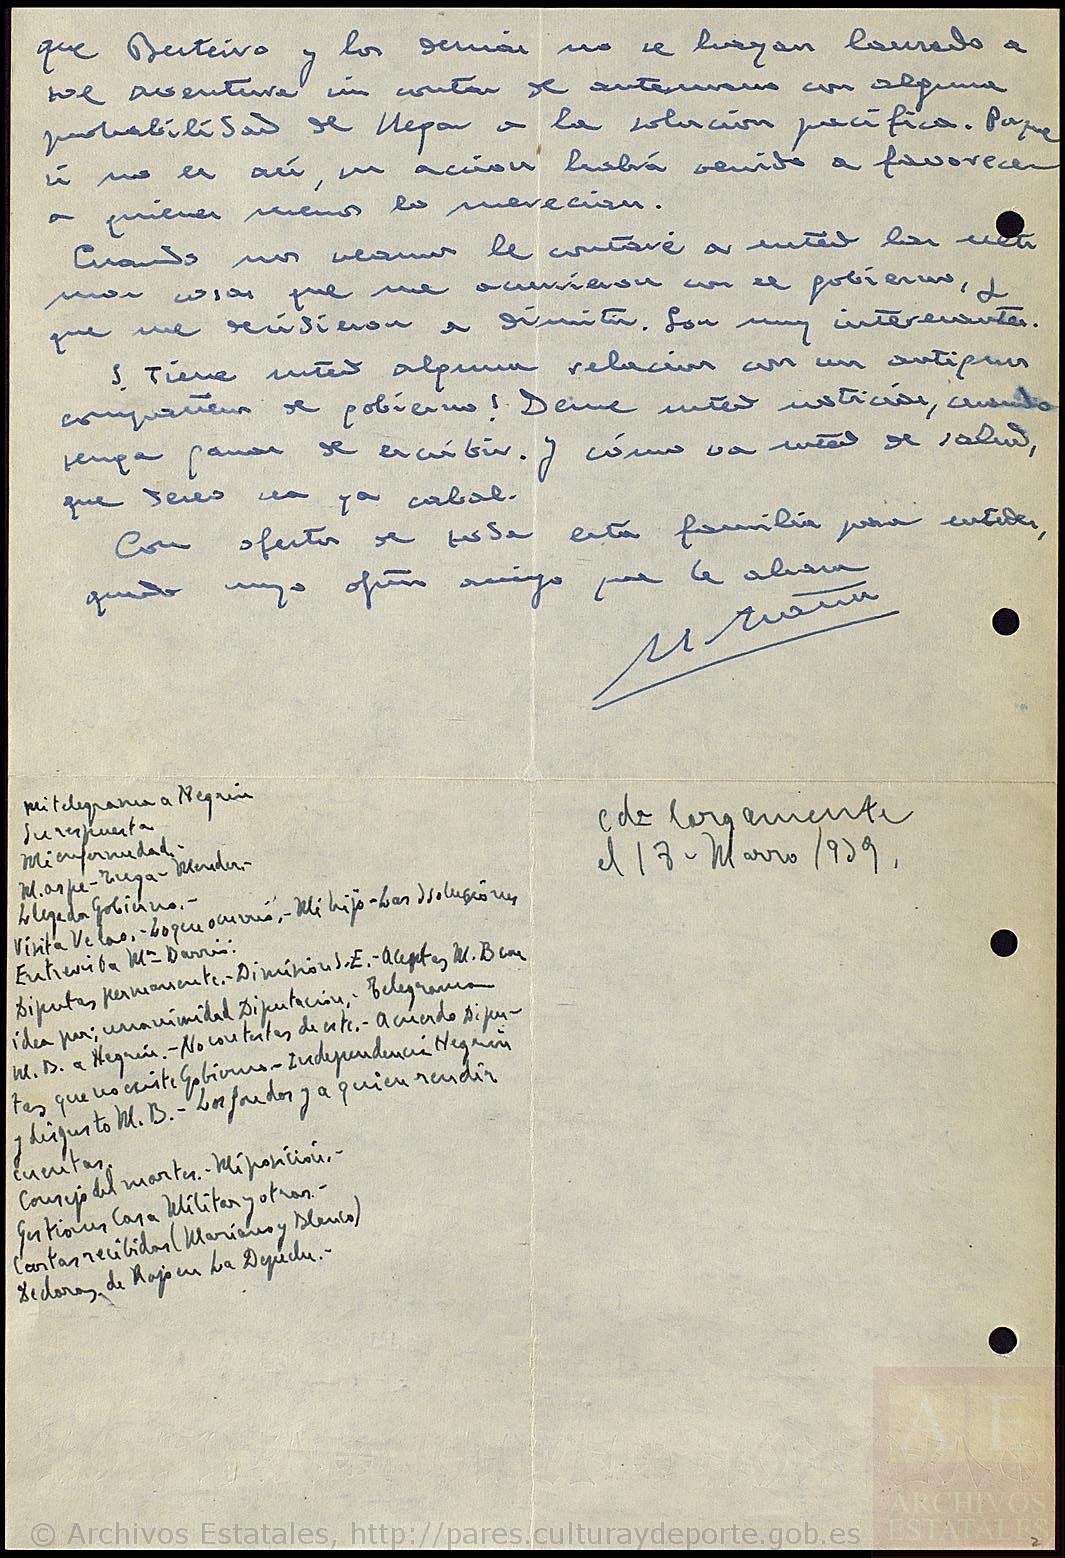 que Besteiro y los demás no se hayan lanzado a
tal aventura sin contar de antemano con alguna
probabilidad de llegar a la solución pacífica. Porque
si no es así, su acción habrá venido a favorecer
a quienes menos lo merecían.
Cuando nos veamos le contaré a usted las últi
mas cosas que me ocurrieron con el gobierno, y
que me decidieron a dimitir. Son muy interesantes.
¿Tiene usted alguna relación con un antiguo
compañero de gobierno? Deme usted noticias, cuando
tenga ganas de escribir. Y cómo va usted de salud,
que deseo sea ya cabal.
Con afectos de toda esta familia para ustedes,
queda suyo afmo amigo que le abraza
M Azaña
cda largamente
el 13 - Marzo 1939.
Mi telegrama a Negrín
Su respuesta
Mi enfermedad.-
M. aspe - Zuga - Mendez.-
Llegada Gobierno.-
Visita Velao.- Lo que ocurrió.- Mi hijo - Las soluciones
Entrevista Mz Barrio.
Diputas permanente.- Dimisión S.E.- Aceptas M. B con
idea por; unanimidad Diputación.- Telegrama
M. B. a Negrín.- No contestas de este.- Acuerdo Dipu-
tas que no existe Gobierno.- Independencia Negrín
y disgusto M. B.- Los fondos y a quien rendir
cuentas.
Consejo del martes.- Mi posición.-
Gestiones Casa Militar y otras.-
Cartas recibidas (Mariano y Blanco)
Declaras. de Rojo en La Depeche.-
© Archivos Estatales, http://pares.culturaydeporte.gob.es
A E
ARCHIVOS
ESTATALES
2